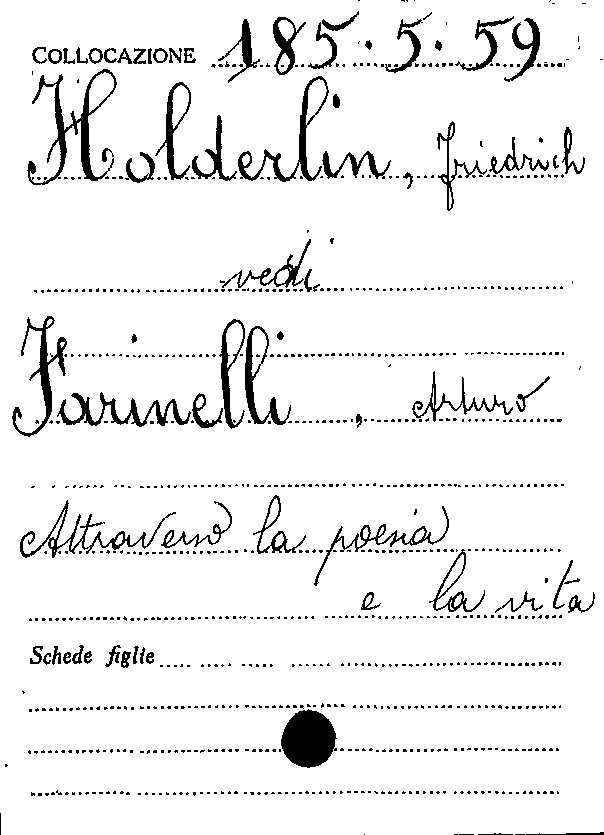 COLLOCAZIONE 185.5.59
Holderlin, Friedrich
vedi
Farinelli, Arturo
Attraverso la poesia
e la vita
Schede figlie